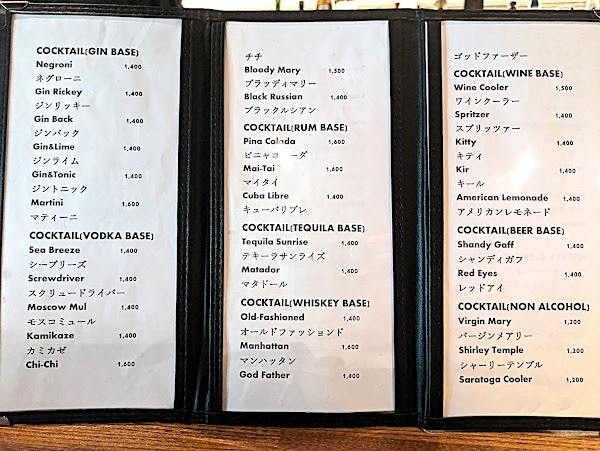 COCKTAIL(GIN BASE)
Negroni 1,400
ネグローニ
Gin Rickey 1,400
ジンリッキー
Gin Back 1,400
ジンバック
Gin&Lime 1,400
ジンライム
Gin&Tonic 1,400
ジントニック
Martini 1,600
マティーニ
COCKTAIL(VODKA BASE)
Sea Breeze 1,400
シーブリーズ
Screwdriver 1,400
スクリュードライバー
Moscow Mul 1,400
モスコミュール
Kamikaze 1,400
カミカゼ
Chi-Chi 1,600
チチ
Bloody Mary 1,500
ブラッディマリー
Black Russian 1,400
ブラックルシアン
COCKTAIL(RUM BASE)
Pina Colada 1,600
ピニャコ ーダ
Mai-Tai 1,600
マイタイ
Cuba Libre 1,400
キューバリブレ
COCKTAIL(TEQUILA BASE)
Tequila Sunrise 1,400
テキーラサンライズ
Matador 1,400
マタドール
COCKTAIL(WHISKEY BASE)
Old-Fashioned 1,400
オールドファッションド
Manhattan 1,600
マンハッタン
God Father 1,400
ゴッドファーザー
COCKTAIL(WINE BASE)
Wine Cooler 1,500
ワインクーラー
Spritzer 1,400
スプリッツァー
Kitty 1,400
キティ
Kir 1,400
キール
American Lemonade 1,400
アメリカンレモネード
COCKTAIL(BEER BASE)
Shandy Gaff 1,400
シャンディガフ
Red Eyes 1,400
レッドアイ
COCKTAIL(NON ALCOHOL)
Virgin Mary 1,200
バージンメアリー
Shirley Temple 1,200
シャーリーテンプル
Saratoga Cooler 1,200